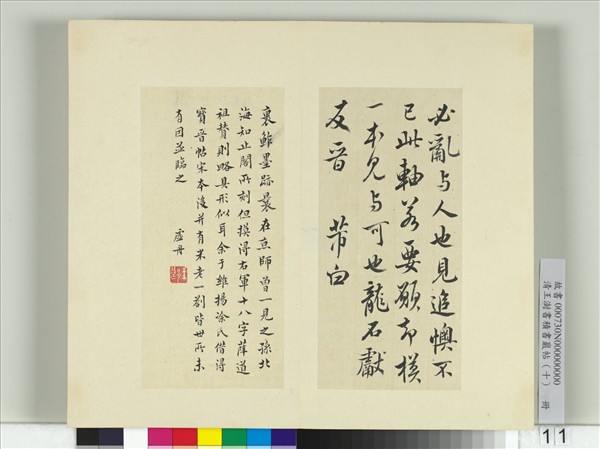 必亂与人也見追懊不
已此軸若要願即摸
一本見与可也龍石獻
友晉 芾白
裹鮓墨跡曩在京師曾一見之孫北
海知止閣所刻但摸得右軍十八字薛道
祖贊則略具形似耳余于維揚涂氏借得
寶晉帖宋本後并有米老一劄皆世所未
有因並臨之
虛舟
故書 000730N000000000
清王澍書積書巖帖（十） 冊
11